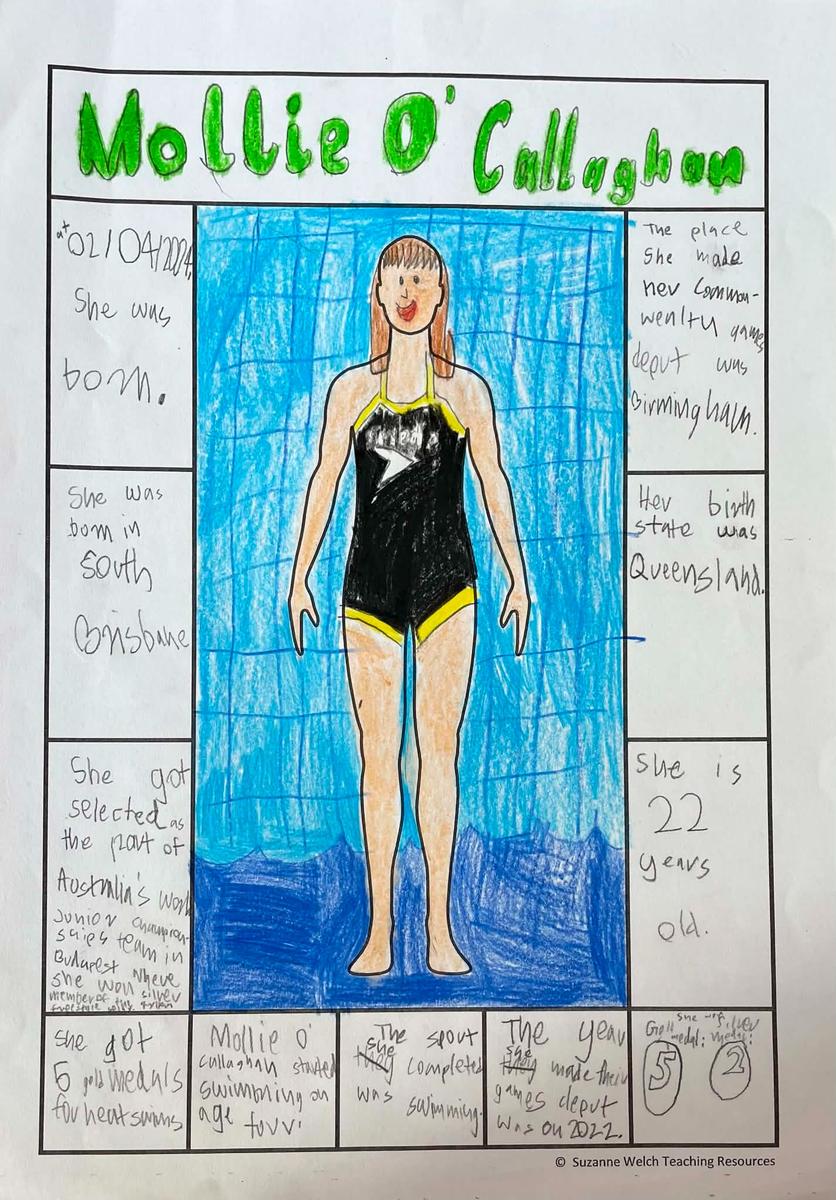 Mollie O'Callaghan
at 02/04/2004,
She was
born.
The place
She made
her Common-
wealth games
deput was
Birmingham.
She was
born in
South
Brisbane
Her birth
state was
Queensland.
She got
selected as
the part of
Australia's world
Junior champion-
ships team in
Budapest where
She won
member of the silver
freestyle
She is
22
years
old.
She got
5 gold medals
for heat swims
Mollie O'
Callaghan started
swimming on
age four.
The sport
she completed
was
swimming.
The year
she made their
games deput
was on 2022.
she won
Gold medal:
5
silver medal:
2
© Suzanne Welch Teaching Resources